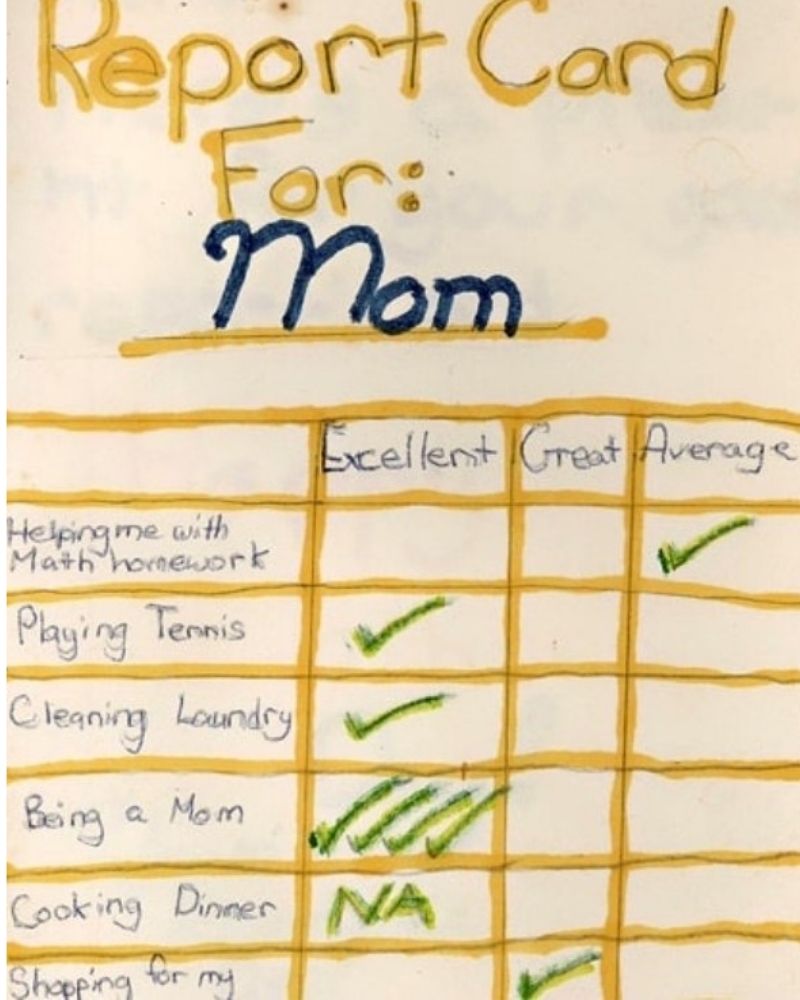 Report Card
For:
Mom
Excellent Great Average
Helping me with
Math homework ✓
Playing Tennis ✓
Cleaning Laundry ✓
Being a Mom ✓✓✓✓
Cooking Dinner NA
Shopping for my ✓